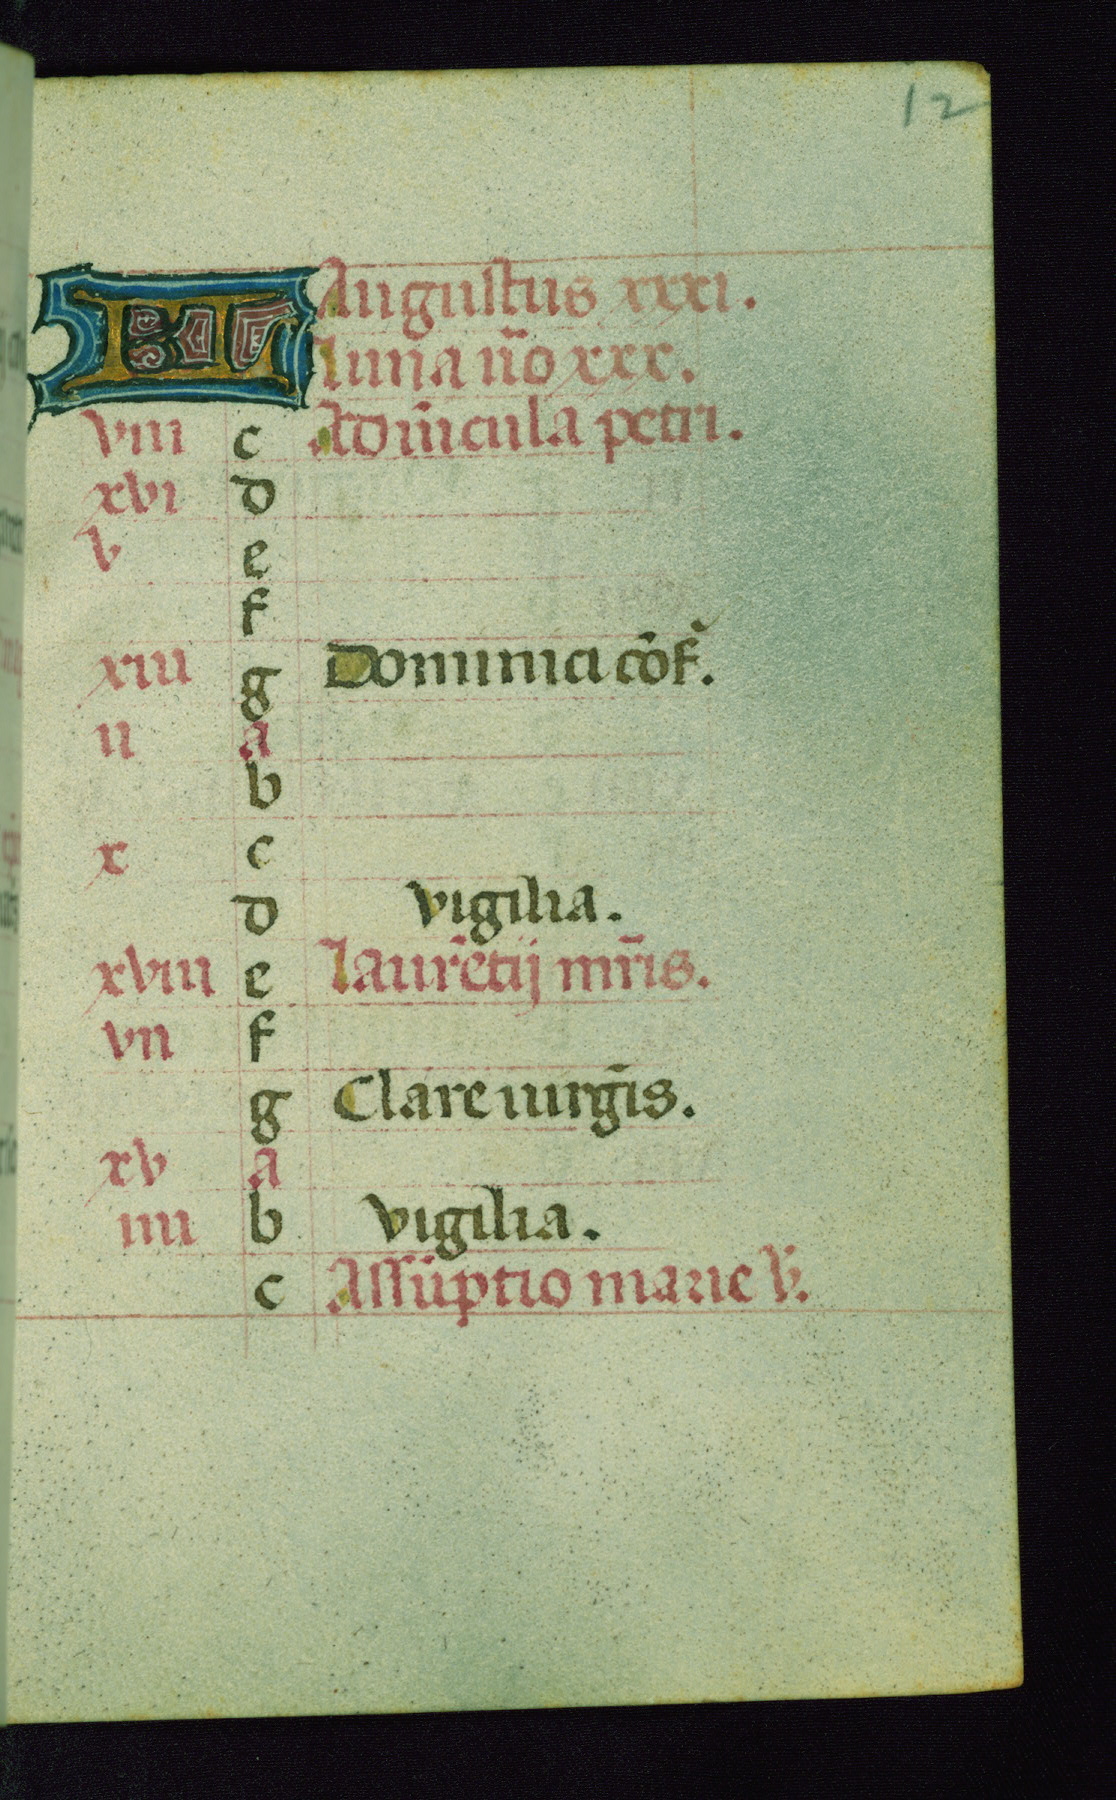 12
KL Augustus xxxi.
luna ño xxx.
viii c Ad uīcula petri.
xvi d
v e
f
xiii g Dominici cōf̃.
ii a
b
x c
d vigilia.
xviii e laurētij mr̄is.
vii f
g Clare uirgīs.
xv a
iiii b vigilia.
c Assūptio marie v̄.